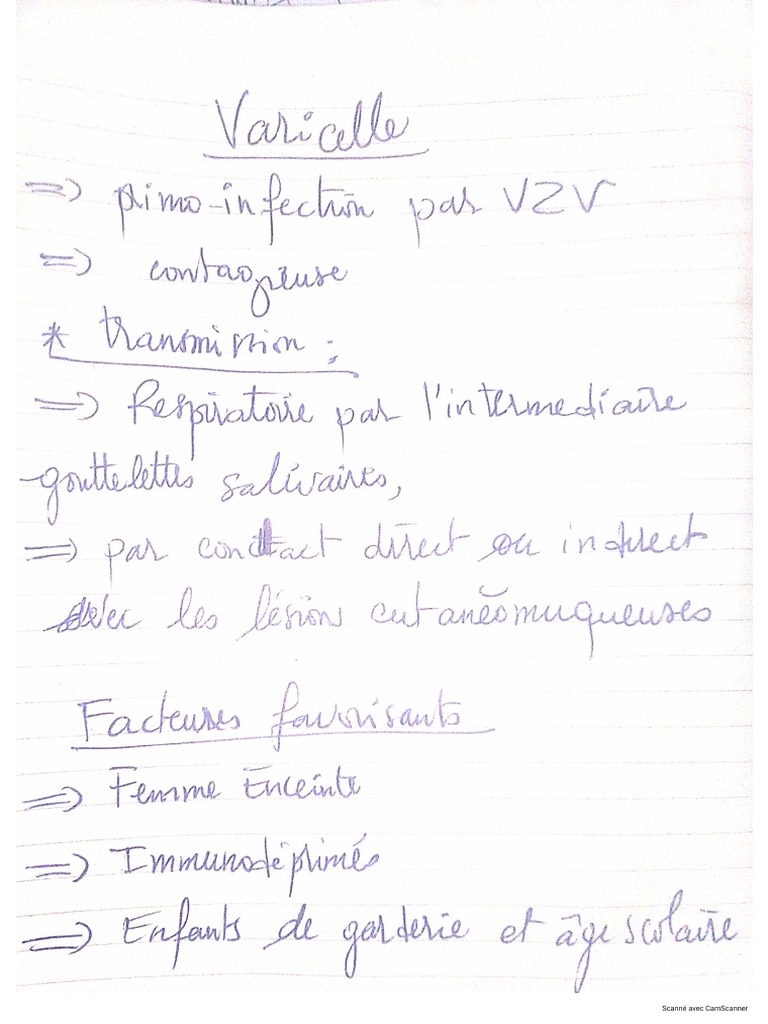 Varicelle
=> primo-infection par VZV
=> contagieuse
* transmission :
=> Respiratoire par l'intermediaire
gouttelettes salivaires,
=> par contact direct ou indirect
avec les lésions cutanéomuqueuses
Facteurses favorisants
=> Femme Enceinte
=> Immunodéprimés
=> Enfants de garderie et âge scolaire
Scanné avec CamScanner